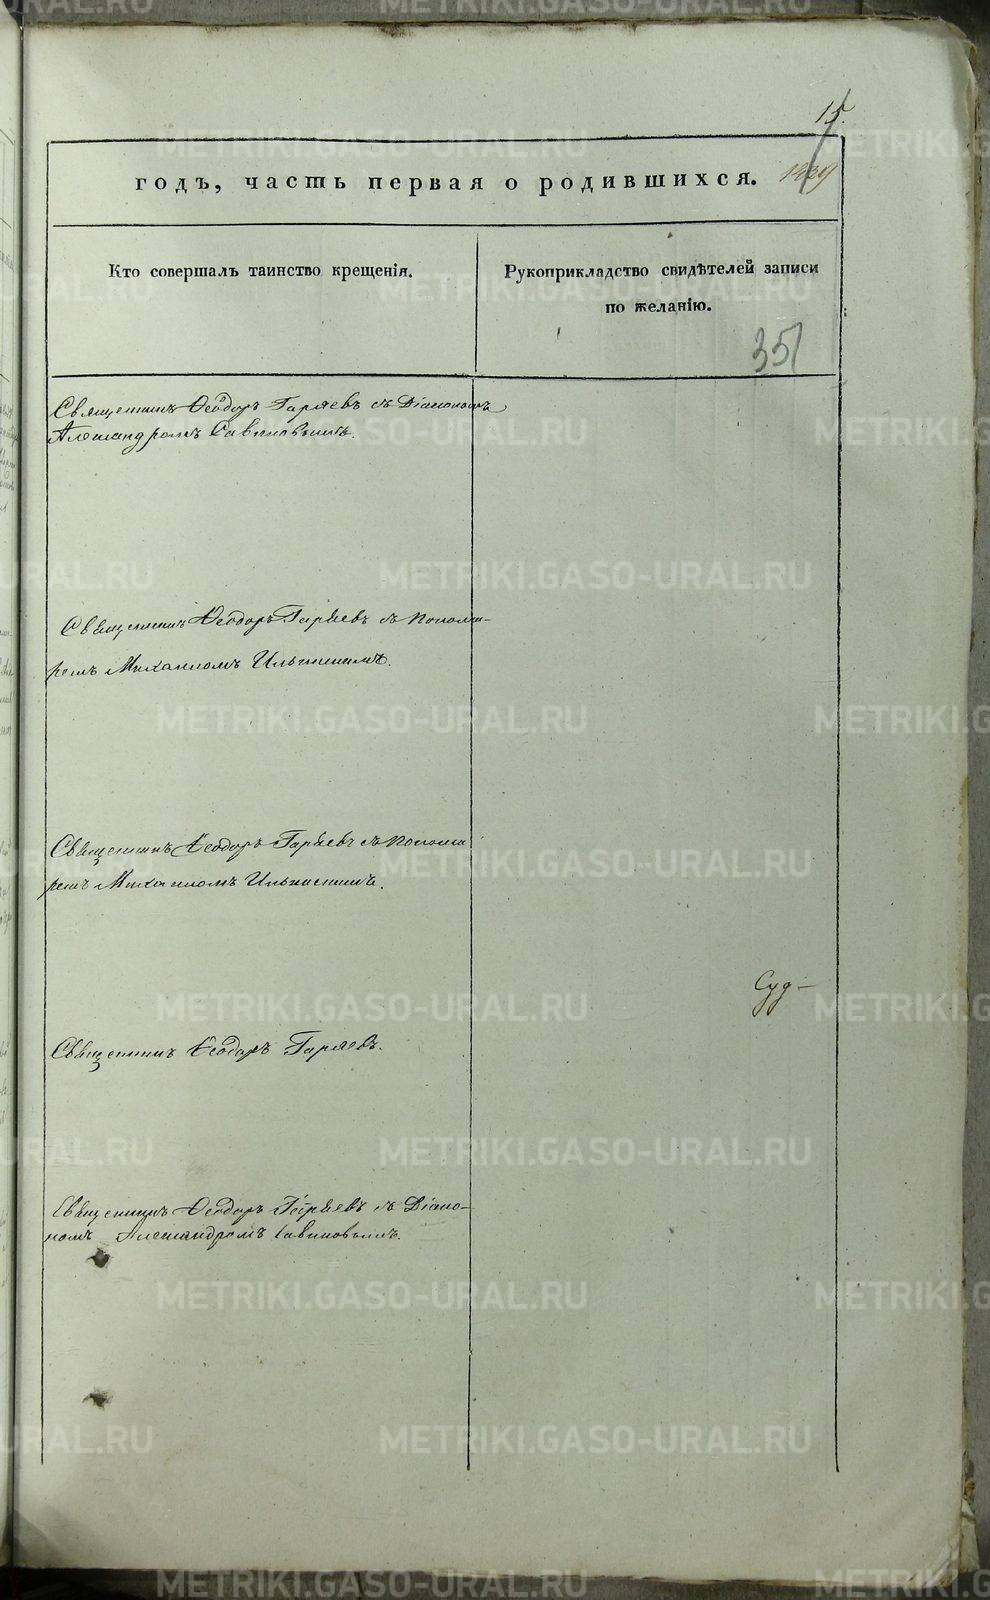 15.
годъ, часть первая о родившихся.
Кто совершалъ таинство крещенія.
Рукоприкладство свидѣтелей записи
по желанію.
351
Священникъ Ѳеодоръ Гаряевъ съ Діакономъ
Александромъ Савиновымъ.
Священникъ Ѳеодоръ Гаряевъ съ понома-
ремъ Михаиломъ Ильинымъ.
Священникъ Ѳеодоръ Гаряевъ съ понома
ремъ Михаиломъ
Суд-
Священникъ Ѳеодоръ Гаряевъ.
Священникъ Ѳеодоръ Гаряевъ съ Діако-
номъ Александромъ Савиновымъ.
METRIKI.GASO-URAL.RU